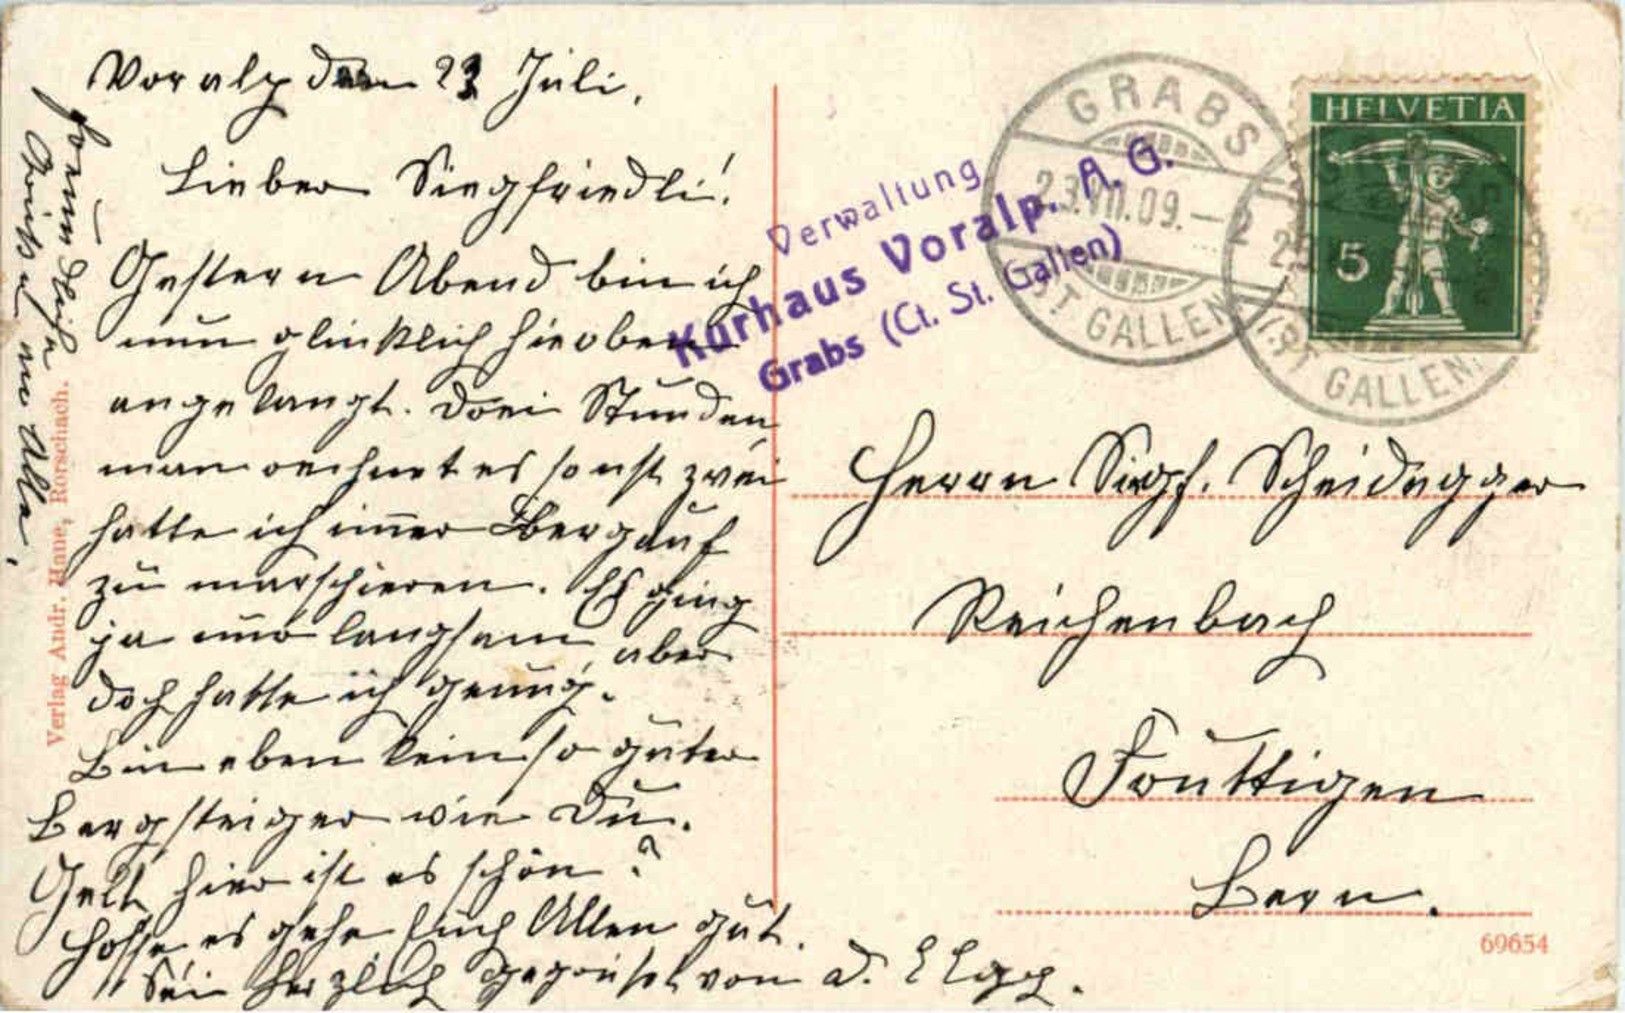 Voralp den 23 Juli.
Lieber Siegfriedli!
Gestern Abend bin ich
nun glücklich hieroben
angelangt. Drei Stunden,
man rechnet es sonst zwei
hatte ich immer Bergauf
zu marschieren. Es ging
ja nur langsam, aber
doch hatte ich genug.
Bin eben kein so guter
Bergsteiger wie Du.
Gelt hier ist es schön?
Hoffe es gehe Euch Allen gut.
Sei herzlich gegrüsst vom
Grüsse mir Alle,
Verlag Andr. Hane, Rorschach.
Verwaltung
Kurhaus Voralp. A. G.
Grabs (Ct. St. Gallen)
GRABS
23.VII.09.–2
(ST GALLEN)
HELVETIA
5
(ST GALLEN)
Herrn Siegf. Scheidegger
Reichenbach
Fruttigen
Bern.
69654